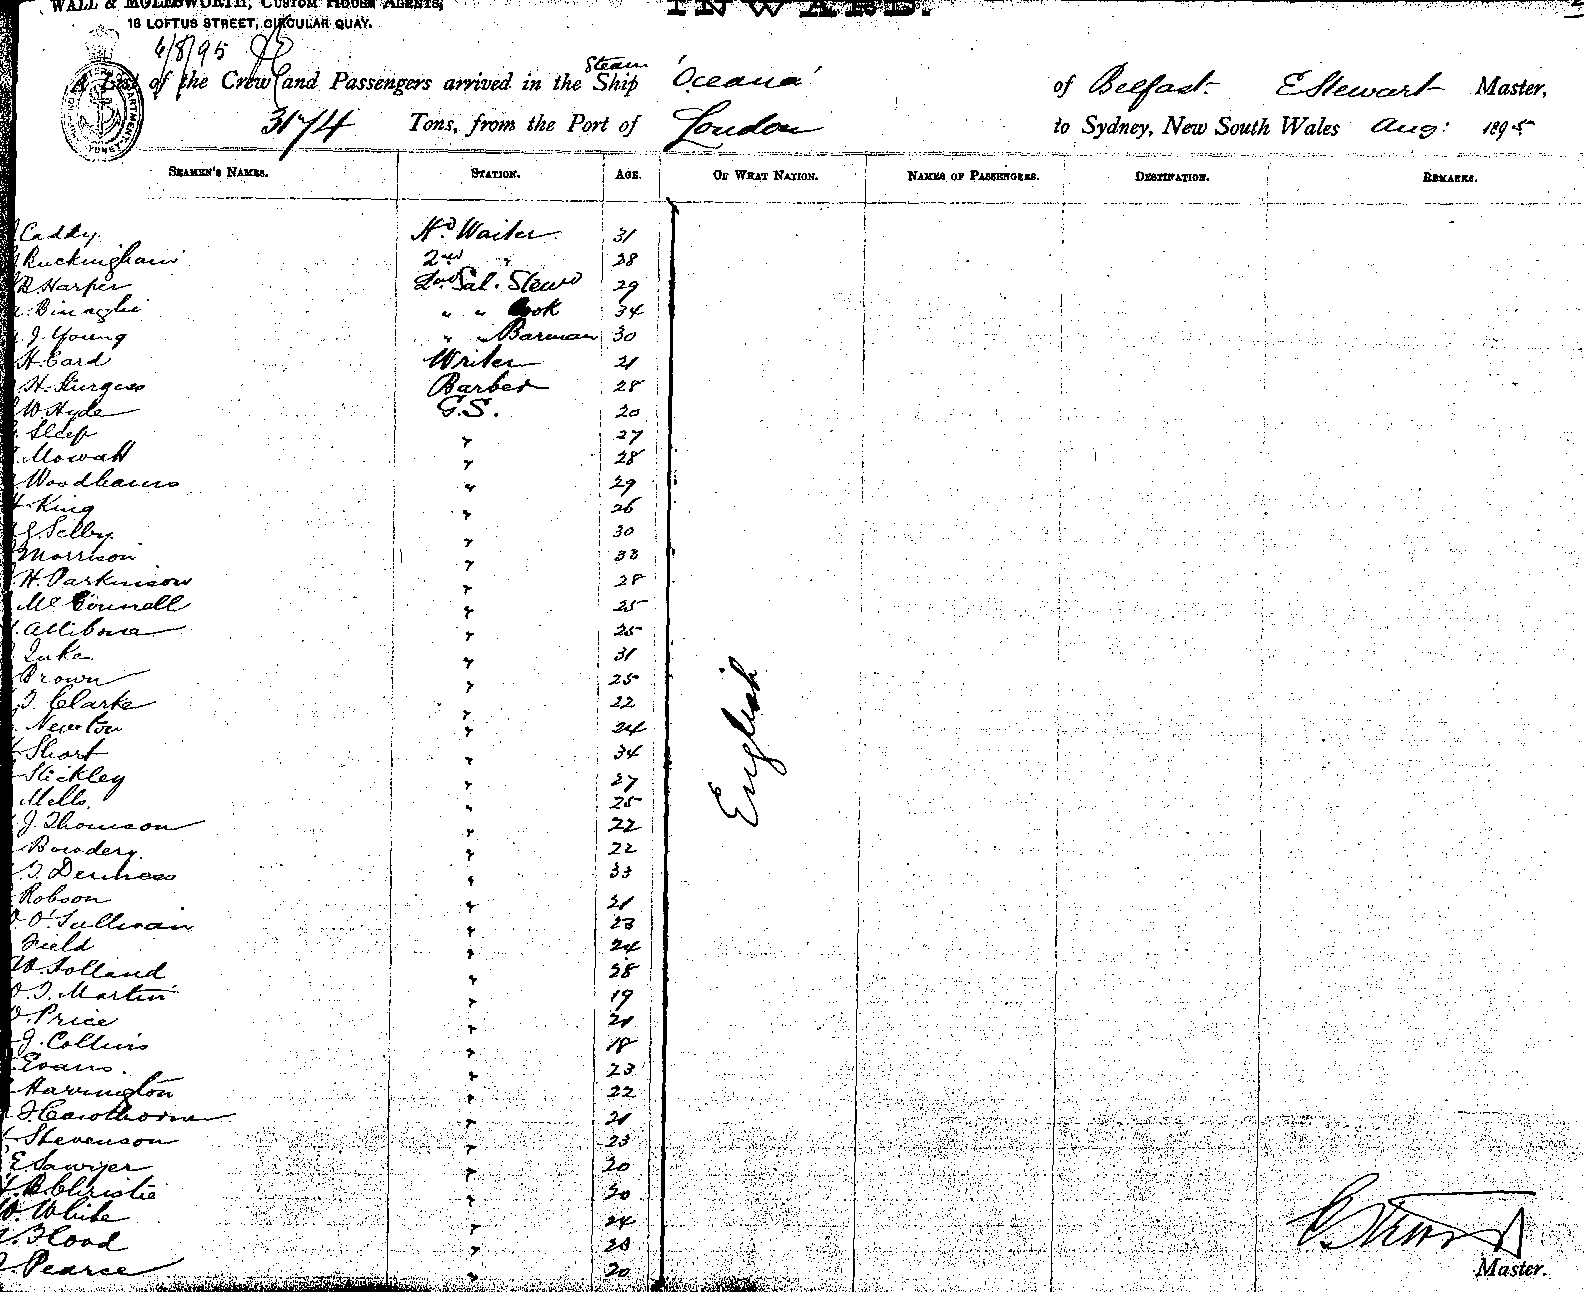 WALL & MOLESWORTH, CUSTOM HOUSE AGENTS,
INWARD.
16 LOFTUS STREET, CIRCULAR QUAY.
6/8/95
A List of the Crew and Passengers arrived in the Steam Ship 'Oceana' of Belfast. E Stewart Master,
3174 Tons, from the Port of London to Sydney, New South Wales Aug: 1895
SEAMEN'S NAMES. STATION. AGE. OF WHAT NATION. NAMES OF PASSENGERS. DESTINATION. REMARKS.
Caddy Hd Waiter 31
Buckingham 2nd " 28
Harper 2nd Sal. Stewd 29
Binaghi " " Cook 34
J. Young " " Barman 30
H. Card Writer 21
H. Sturgess Barber 28
W Hyde G.S. 20
Sleep " 27
Mowatt " 28
Woodhams " 29
King " 26
Selby " 30
Morrison " 33
H. Parkinson " 28
McConnell " 25
Allibone " 25
Luke " 31
Brown " 25
Clarke " 22
Newton " 24
Short " 34
Stickley " 27
Mells " 25
J. Thomson " 22
Bowdery " 22
Denness " 33
Robson " 21
O'Sullivan " 23
Field " 24
W. Tolland " 28
Martin " 19
Price " 21
J. Collins " 18
Evans " 23
Harrington " 22
Cawthorne " 21
Stevenson " 23
E Sawyer " 20
Christie " 20
W. White " 24
Flood " 23
Pearce " 20
English
E Stewart
Master.